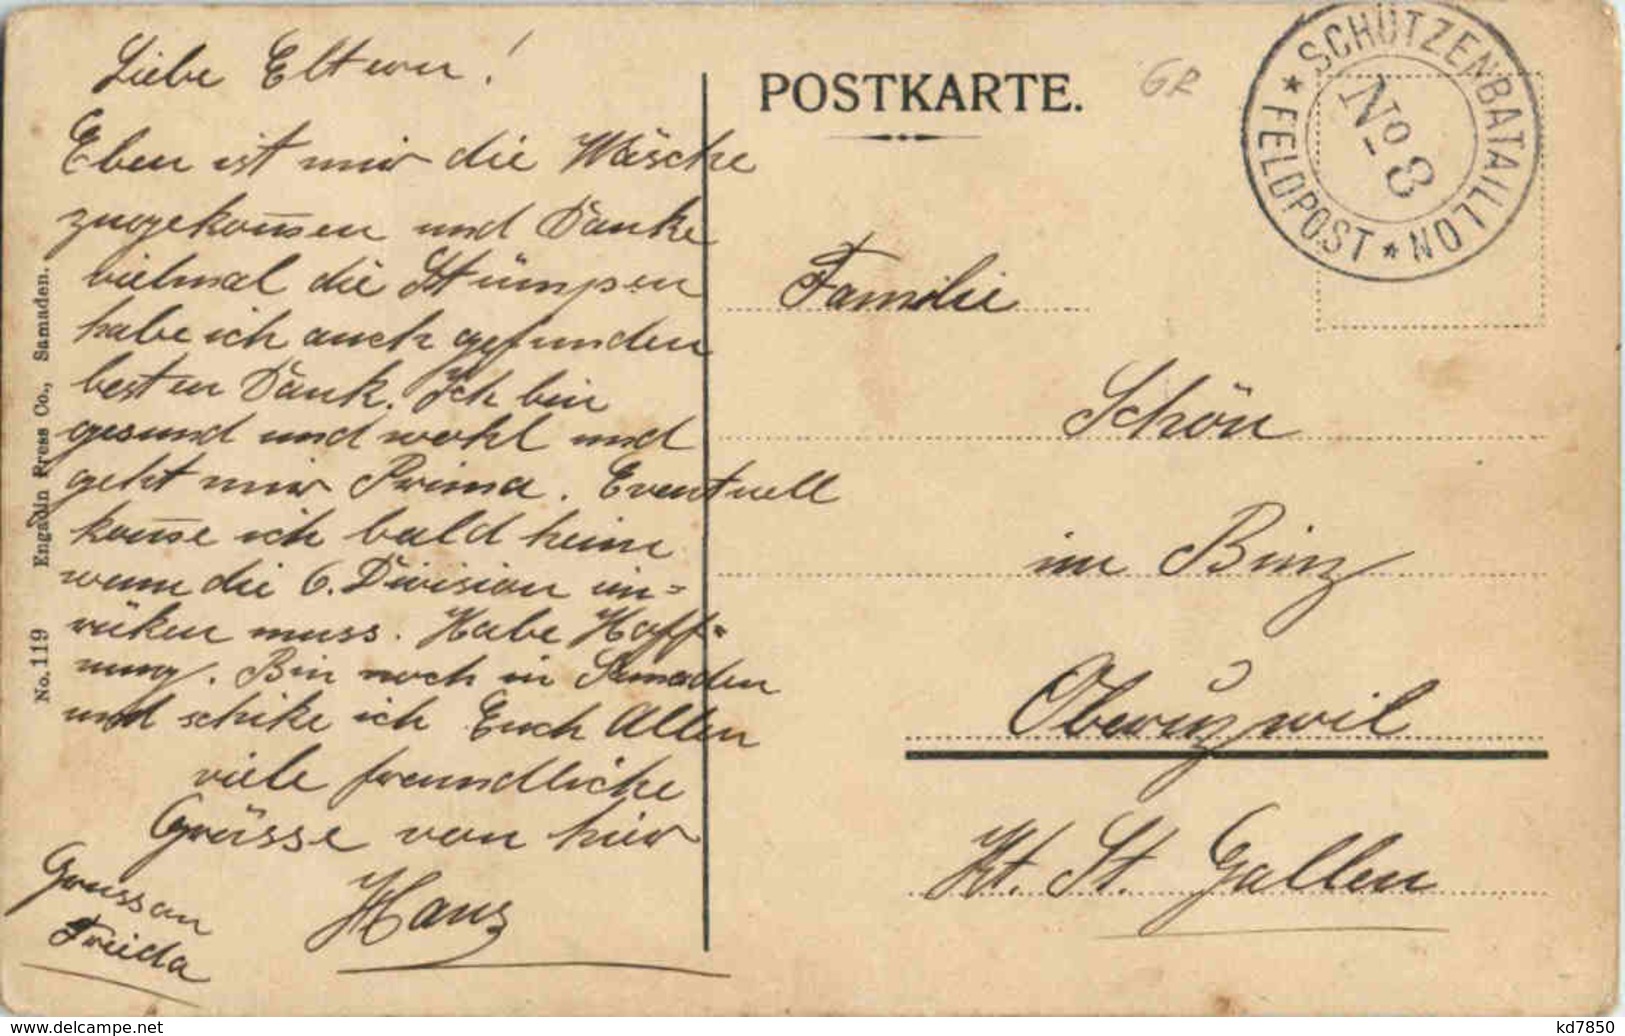 Liebe Eltern!
Eben ist mir die Wäsche
zugekom̅en und Danke
vielmal die Stümpen
habe ich auch gefunden
besten Dank. Ich bin
gesund und wohl und
geht mir Prima. Eventuell
kom̅e ich bald heim
wenn die 6. Division ein=
rüken muss. Habe Hoff=
nung. Bin noch in Samaden
und schike ich Euch Allen
viele freundliche
Grüsse von hier
Hans
Gruss an
Frieda
No. 119 Engadin Press Co., Samaden.
POSTKARTE.
GR
SCHÜTZENBATAILLON
No 8
* FELDPOST *
Familie
Schön
im Binz
Oberuzwil
Kt. St. Gallen
kd7850